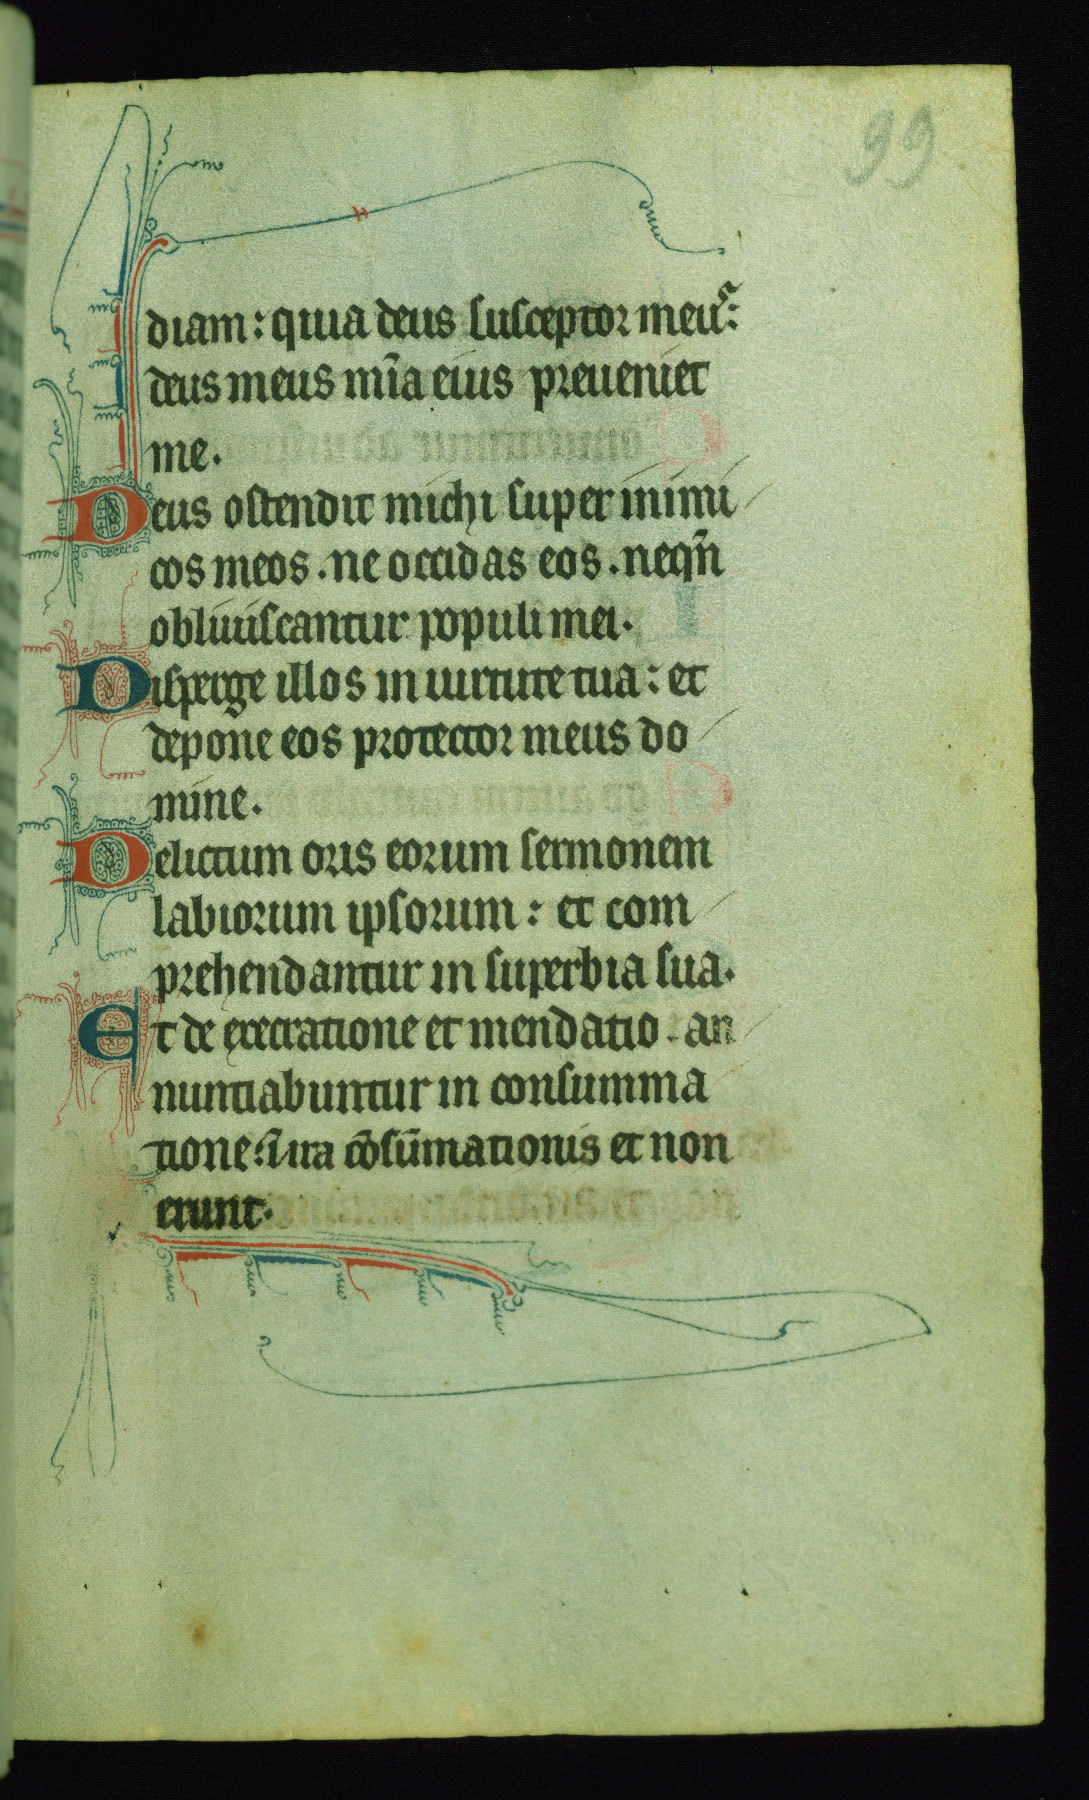 99
diam: quia deus susceptor meus:
deus meus mīa eius preueniet
me.
Deus ostendit michi super inimi
cos meos. ne occidas eos. neqn̄
obliuiscantur populi mei.
Disperge illos in uirtute tua: et
depone eos protector meus do
mine.
Delictum oris eorum sermonem
labiorum ipsorum: et com
prehendantur in superbia sua.
Et de execratione et mendatio. an
nuntiabuntur in consumma
tione: ī ira cōsūmationis et non
erunt.